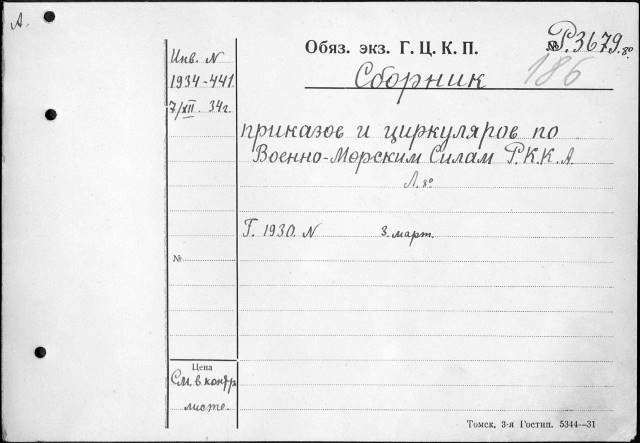 А.
Обяз. экз. Г. Ц. К. П.
№ Р.3679.8°
Инв. N
1934-441
7/XII. 34г.
Сборник
186
приказов и циркуляров по
Военно-Морским Силам Р.К.К.А.
Л.8°
Г. 1930. N 3. март.
№
Цена
См. в контр.
листе.
Томск, 3-я Гостип. 5344—31